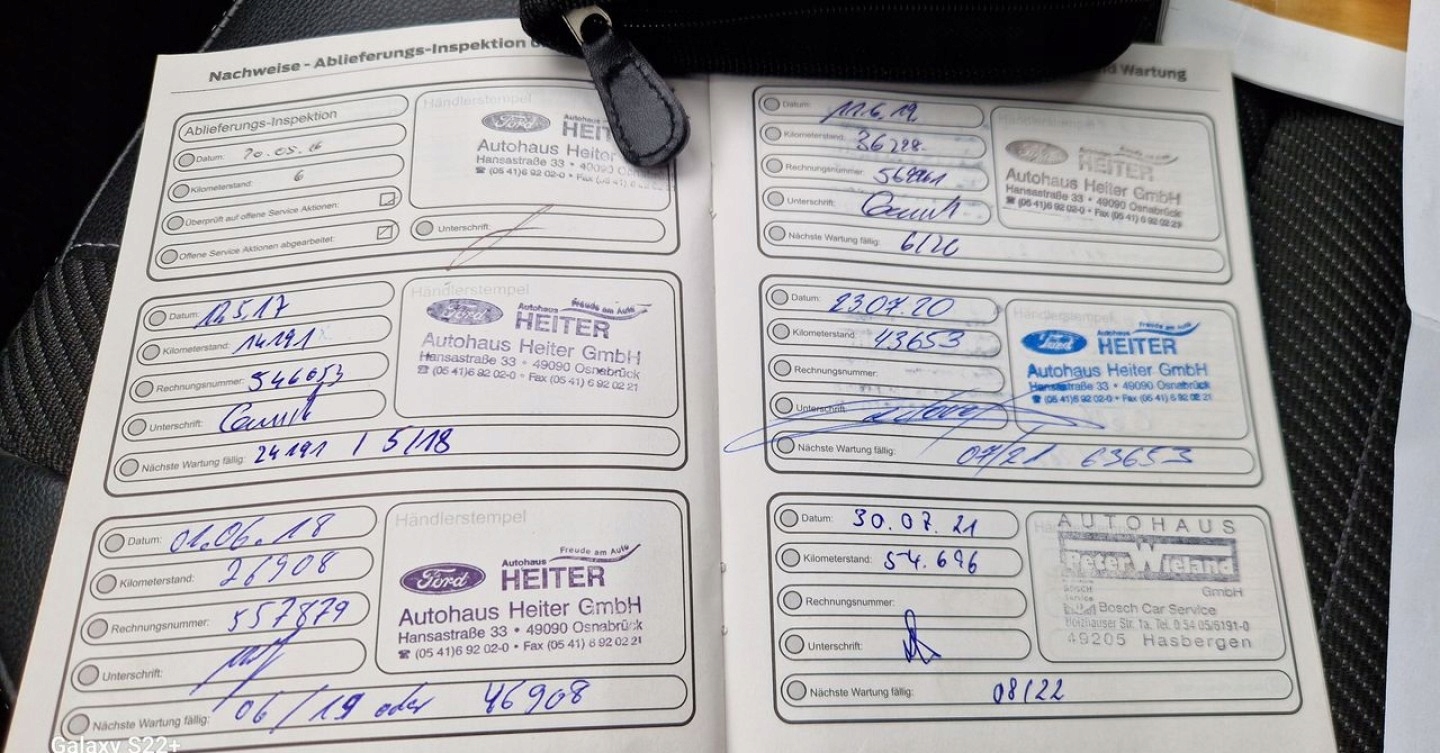 Nachweise - Ablieferungs-Inspektion
Ablieferungs-Inspektion
Datum: 20.05.16
Kilometerstand: 6
Überprüft auf offene Service Aktionen:
Offene Service Aktionen abgearbeitet:
Händlerstempel
Ford
Autohaus
HEIT
Autohaus Heiter
Hansastraße 33 • 49090
(05 41)6 92 02-0 • Fax
Unterschrift:
Datum: 12.5.17
Kilometerstand: 14191
Rechnungsnummer: 546053
Unterschrift:
Nächste Wartung fällig: 24191 / 5/18
Händlerstempel
Ford
Autohaus Freude am Auto
HEITER
Autohaus Heiter GmbH
Hansastraße 33 • 49090 Osnabrück
(05 41)6 92 02-0 • Fax (05 41) 6 92 02 21
Datum: 01.06.18
Kilometerstand: 26908
Rechnungsnummer: 557879
Unterschrift:
Nächste Wartung fällig: 06/19 oder 46908
Händlerstempel
Ford
Autohaus Freude am Auto
HEITER
Autohaus Heiter GmbH
Hansastraße 33 • 49090 Osnabrück
(05 41)6 92 02-0 • Fax (05 41) 6 92 02 21
Galaxy S22+
Wartung
Datum: 11.6.19
Kilometerstand: 36228
Rechnungsnummer:
Unterschrift:
Nächste Wartung fällig: 6/20
Autohaus
HEITER
Autohaus Heiter GmbH
Hansastraße 33 • 49090 Osnabrück
(05 41)6 92 02-0 • Fax (05 41) 6 92 02 21
Datum: 23.07.20
Kilometerstand: 43653
Rechnungsnummer:
Unterschrift:
Nächste Wartung fällig: 07/21 63653
Händlerstempel
Ford
Autohaus Freude am Auto
HEITER
Autohaus Heiter GmbH
Hansastraße 33 • 49090 Osnabrück
(05 41)6 92 02-0 • Fax (05 41) 6 92 02 21
Datum: 30.07.21
Kilometerstand: 54.696
Rechnungsnummer:
Unterschrift:
Nächste Wartung fällig: 08/22
AUTOHAUS
Peter Wieland
GmbH
BOSCH
Service
Bosch Car Service
Holzhauser Str. 1a. Tel. 0 54 05/6191-0
49205 Hasbergen